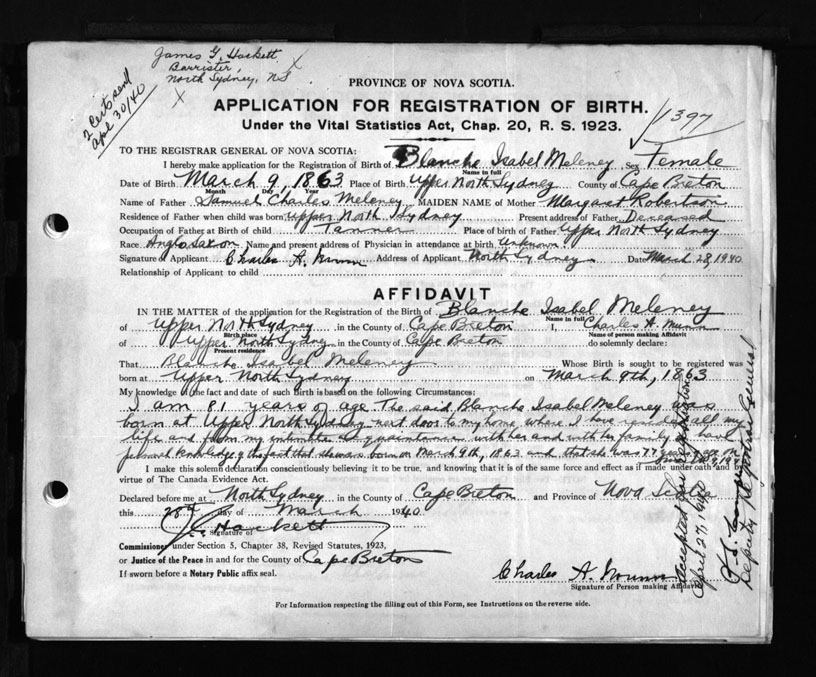 James G. Hackett
Barrister,
North Sydney, N.S.
2 Certs send
April 30/40
PROVINCE OF NOVA SCOTIA.
APPLICATION FOR REGISTRATION OF BIRTH.
Under the Vital Statistics Act, Chap. 20, R. S. 1923.
1397
TO THE REGISTRAR GENERAL OF NOVA SCOTIA:
I hereby make application for the Registration of Birth of Blanche Isabel Meleney Sex Female
Name in full
Date of Birth March 9, 1863 Place of Birth Upper North Sydney County of Cape Breton
Month Day Year
Name of Father Samuel Charles Meleney MAIDEN NAME of Mother Margaret Robertson
Residence of Father when child was born Upper North Sydney Present address of Father Deceased
Occupation of Father at Birth of child Tanner Place of birth of Father Upper North Sydney
Race Anglo Saxon Name and present address of Physician in attendance at birth Unknown
Signature of Applicant Charles A. Munn Address of Applicant North Sydney Date March 28, 1940
Relationship of Applicant to child
AFFIDAVIT
IN THE MATTER of the application for the Registration of the Birth of Blanche Isabel Meleney
Name in full
of Upper North Sydney in the County of Cape Breton I, Charles A. Munn
Birth place Name of person making Affidavit
of Upper North Sydney in the County of Cape Breton do solemnly declare:
Present residence
That Blanche Isabel Meleney Whose Birth is sought to be registered was
born at Upper North Sydney on March 9th, 1863
My knowledge of the fact and date of such Birth is based on the following Circumstances:
I am 81 years of age. The said Blanche Isabel Meleney was
born at Upper North Sydney next door to my home where I have resided all my
life and from my intimate acquaintance with her and with her family I have
personal knowledge of the fact that she was born on March 9th, 1863 and that she was 77 years
I make this solemn declaration conscientiously believing it to be true, and knowing that it is of the same force and effect as if made under oath and by
virtue of The Canada Evidence Act.
Declared before me at North Sydney in the County of Cape Breton and Province of Nova Scotia
this 28th day of March 1940.
Hackett
Signature of
Commissioner under Section 5, Chapter 38, Revised Statutes, 1923,
or Justice of the Peace in and for the County of Cape Breton
If sworn before a Notary Public affix seal.
Charles A. Munn
Signature of Person making Affidavit
Accepted for registration
April 27, 1940
Deputy Registrar General
For Information respecting the filling out of this Form, see Instructions on the reverse side.